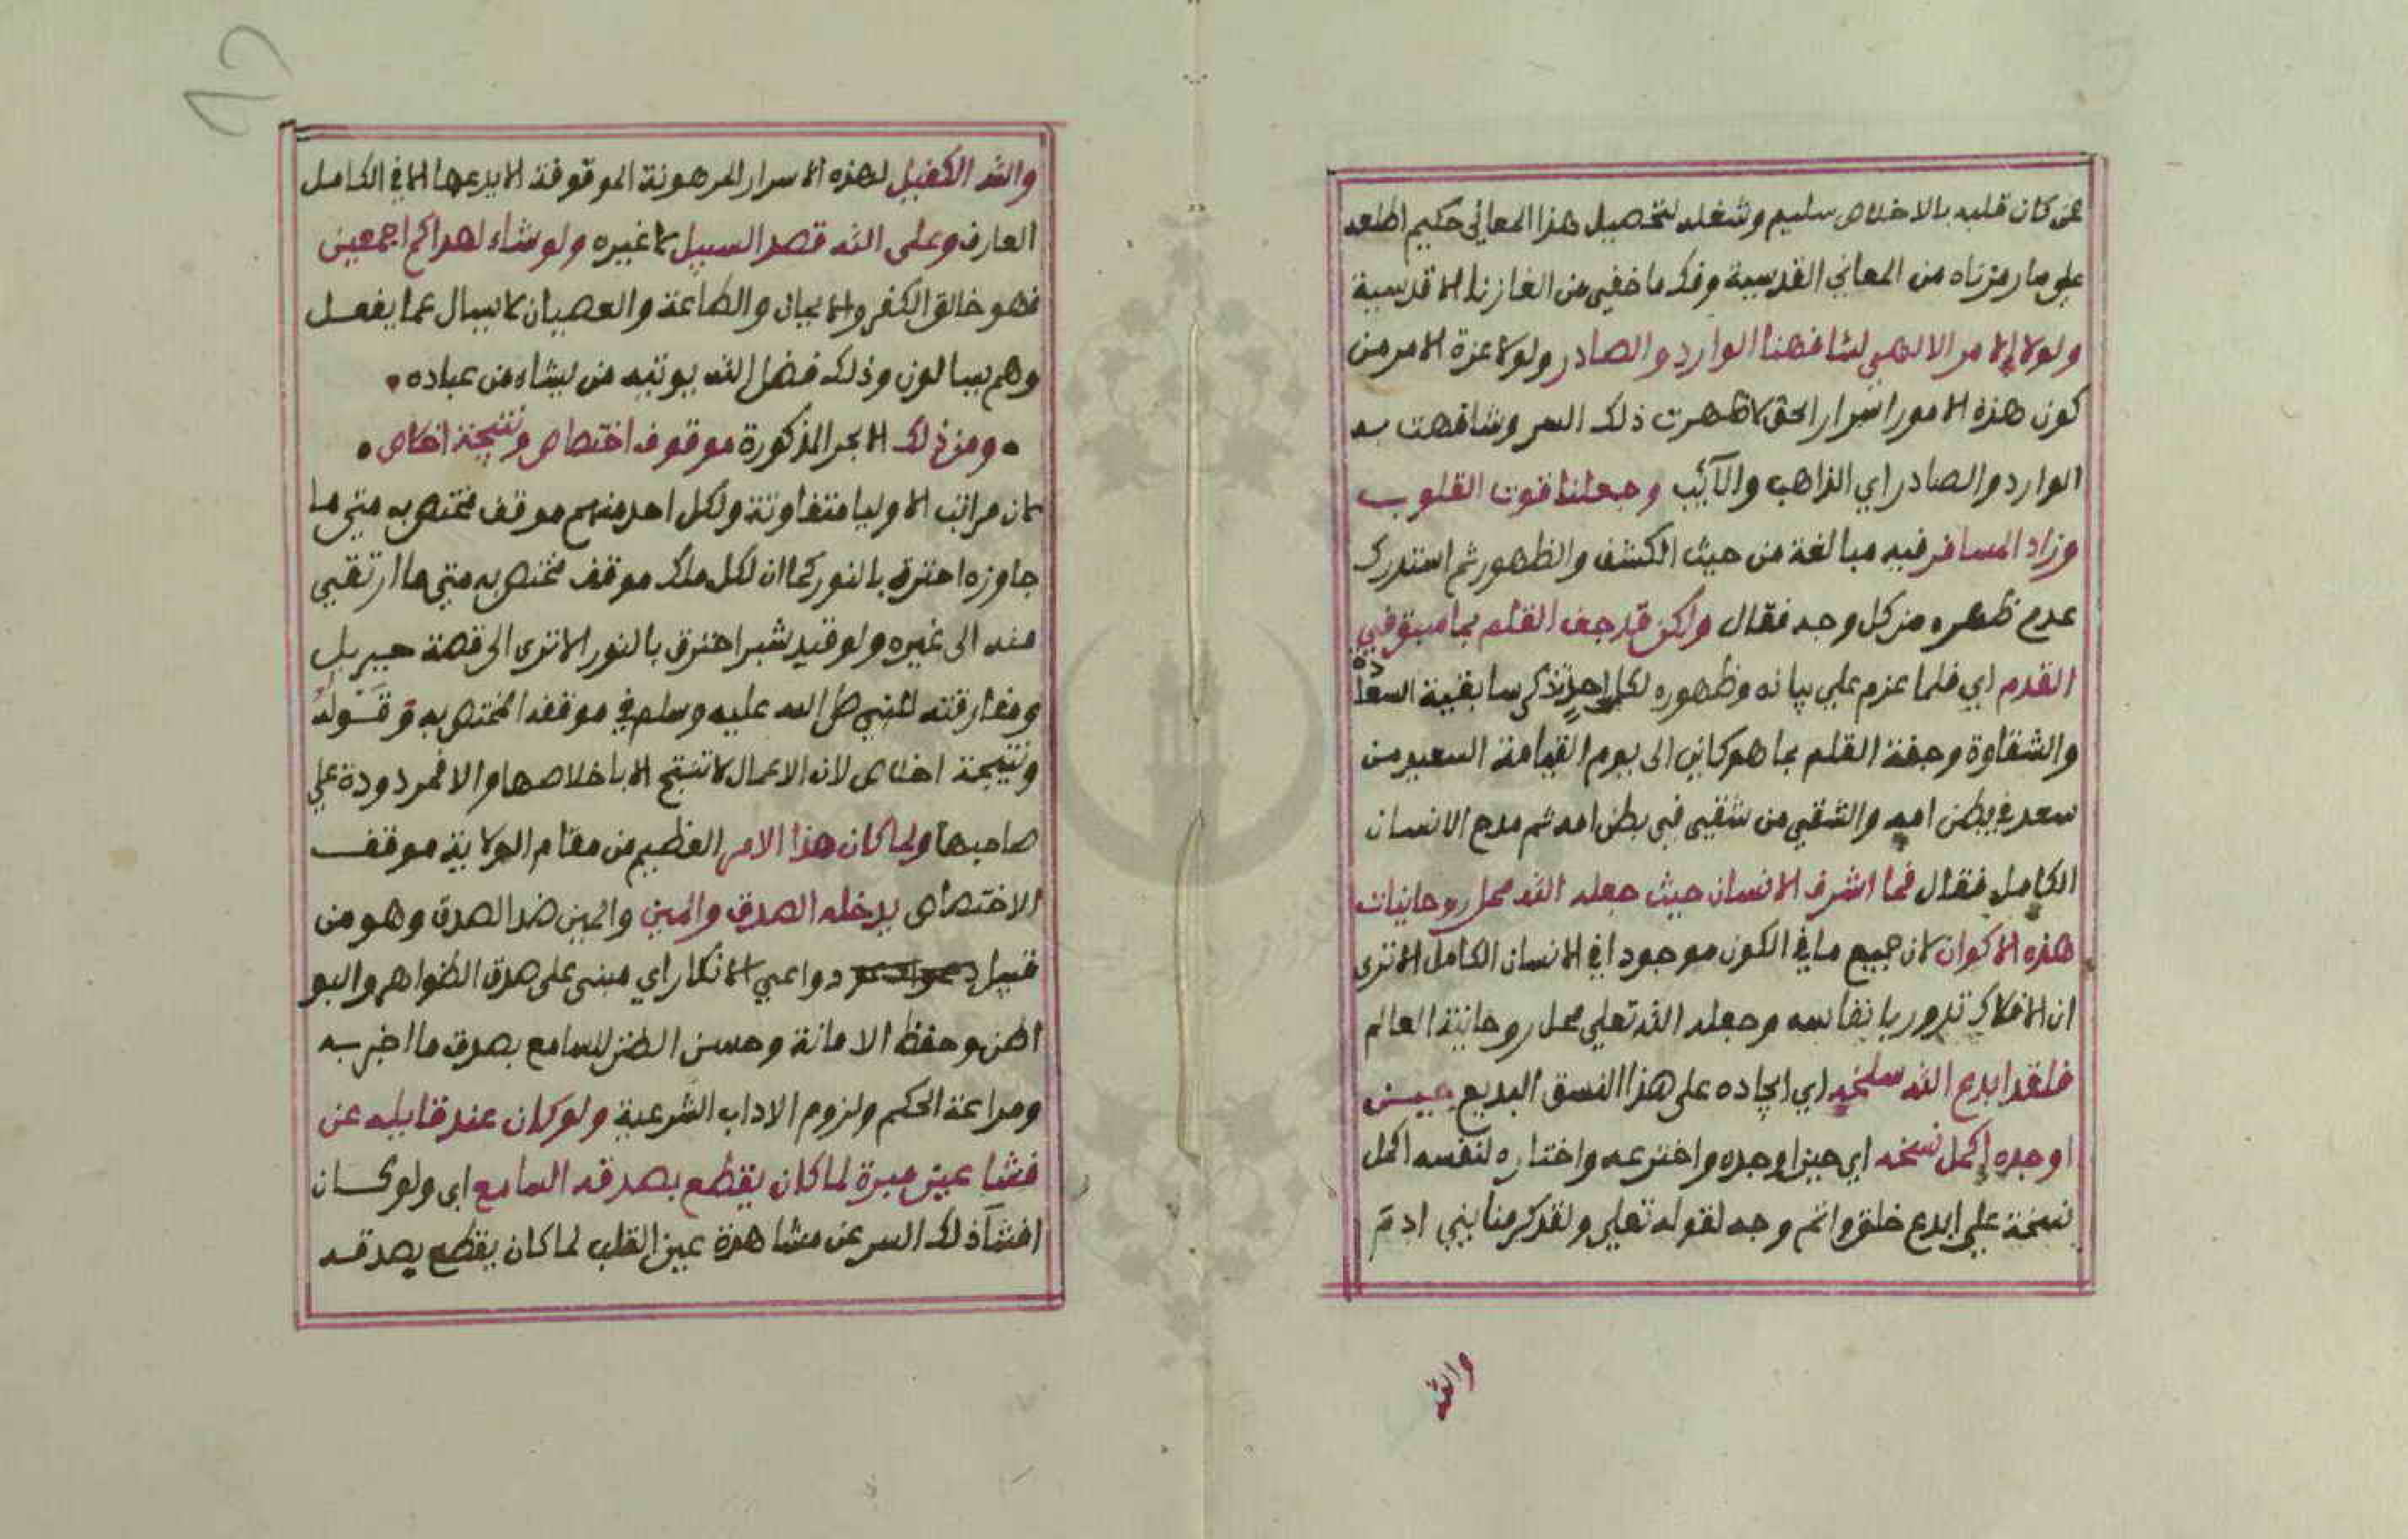 عن كان قلبه بالاخلاص سليم وشغله لتحصيل هذا المعاني حكيم اطلعه
علي ما رمزناه من المعاني القدسية وفك ما خفي من الغازنا الاقدسية
ولولا الامر الالهي لشافهنا الوارد والصادر ولولا عزة الامر من
كون هذه الامور اسرار الحق لاظهرت ذلك السر وشافهت به
الوارد والصادر اي الذاهب والآئيب وجعلنا قوت القلوب
وزاد المسافر فيه مبالغة من حيث الكشف والظهور ثم استدرك
عدم ظهره من كل وجه فقال ولكن قد جف القلم بما سبق في
القدم اي فلما عزم علي بيانه وظهوره لكل احد تذكر سابقية السعادة
والشقاوة وجفة القلم بما هو كاين الى يوم القيامة السعيد من
سعد في بطن امه والشقي من شقي في بطن امه ثم مدح الانسان
الكامل فقال فما اشرف الانسان حيث جعله الله محل روحانيات
هذه الاكوان لان جميع ما في الكون موجود في الانسان الكامل الا ترى
ان الافلاك تدور بانفاسه وجعله الله تعلي محل روحانية العالم
فلقد ابدع الله سلخه اي ايجاده على هذا النسق البديع حين
اوجده اكمل نسخه اي حين اوجده واخترعه واختاره لنفسه اكمل
نسخة علي ابدع خلق واتم وجه لقوله تعلي ولقد كرمنا بني ادم
والله
والله الكفيل لهذه الاسرار المرهونة الموقوفة لا يدعها الا في الكامل
العارف وعلى الله قصد السبيل لا غيره ولو شاء لهداكم اجمعين
فهو خالق الكفر والايمان والطاعة والعصيان لا يسال عما يفعل
وهم يسالون وذلك فضل الله يوتيه من يشاء من عباده
ومن ذلك الابحر المذكورة موقوف اختصاص ونتيجة اخلاص
لان مراتب الاوليا متفاوتة ولكل احد منهم موقف مختص به متى ما
جاوزه احترق بالنور كما ان لكل ملك موقف مختص به متي ما ارتقي
منه الى غيره ولو قيد شبر احترق بالنور الا ترى الى قصة جبريل
ومفارقته للنبي صلى الله عليه وسلم في موقفه المختص به وقوله
ونتيجة اخلاص لان الاعمال لا تنتج الا باخلاصها والا فمردودة علي
صاحبها ولما كان هذا الامر العظيم من مقام الولاية موقف
الاختصاص يدخله الصدق والمين والمين ضد الصدق وهو من
قبيل دواعي الانكار اي مبنى على صدق الظواهر والبو
اطن وحفظ الامانة وحسن الظن للسامع بصدق ما اخبر به
ومراعة الحكم ولزوم الاداب الشرعية ولو كان عند قايليه عن
فشا عين مبرة لما كان يقطع بصدقه السامع اى ولو كان
افشآ ذلك السر عن مشاهدة عين القلب لما كان يقطع بصدقه